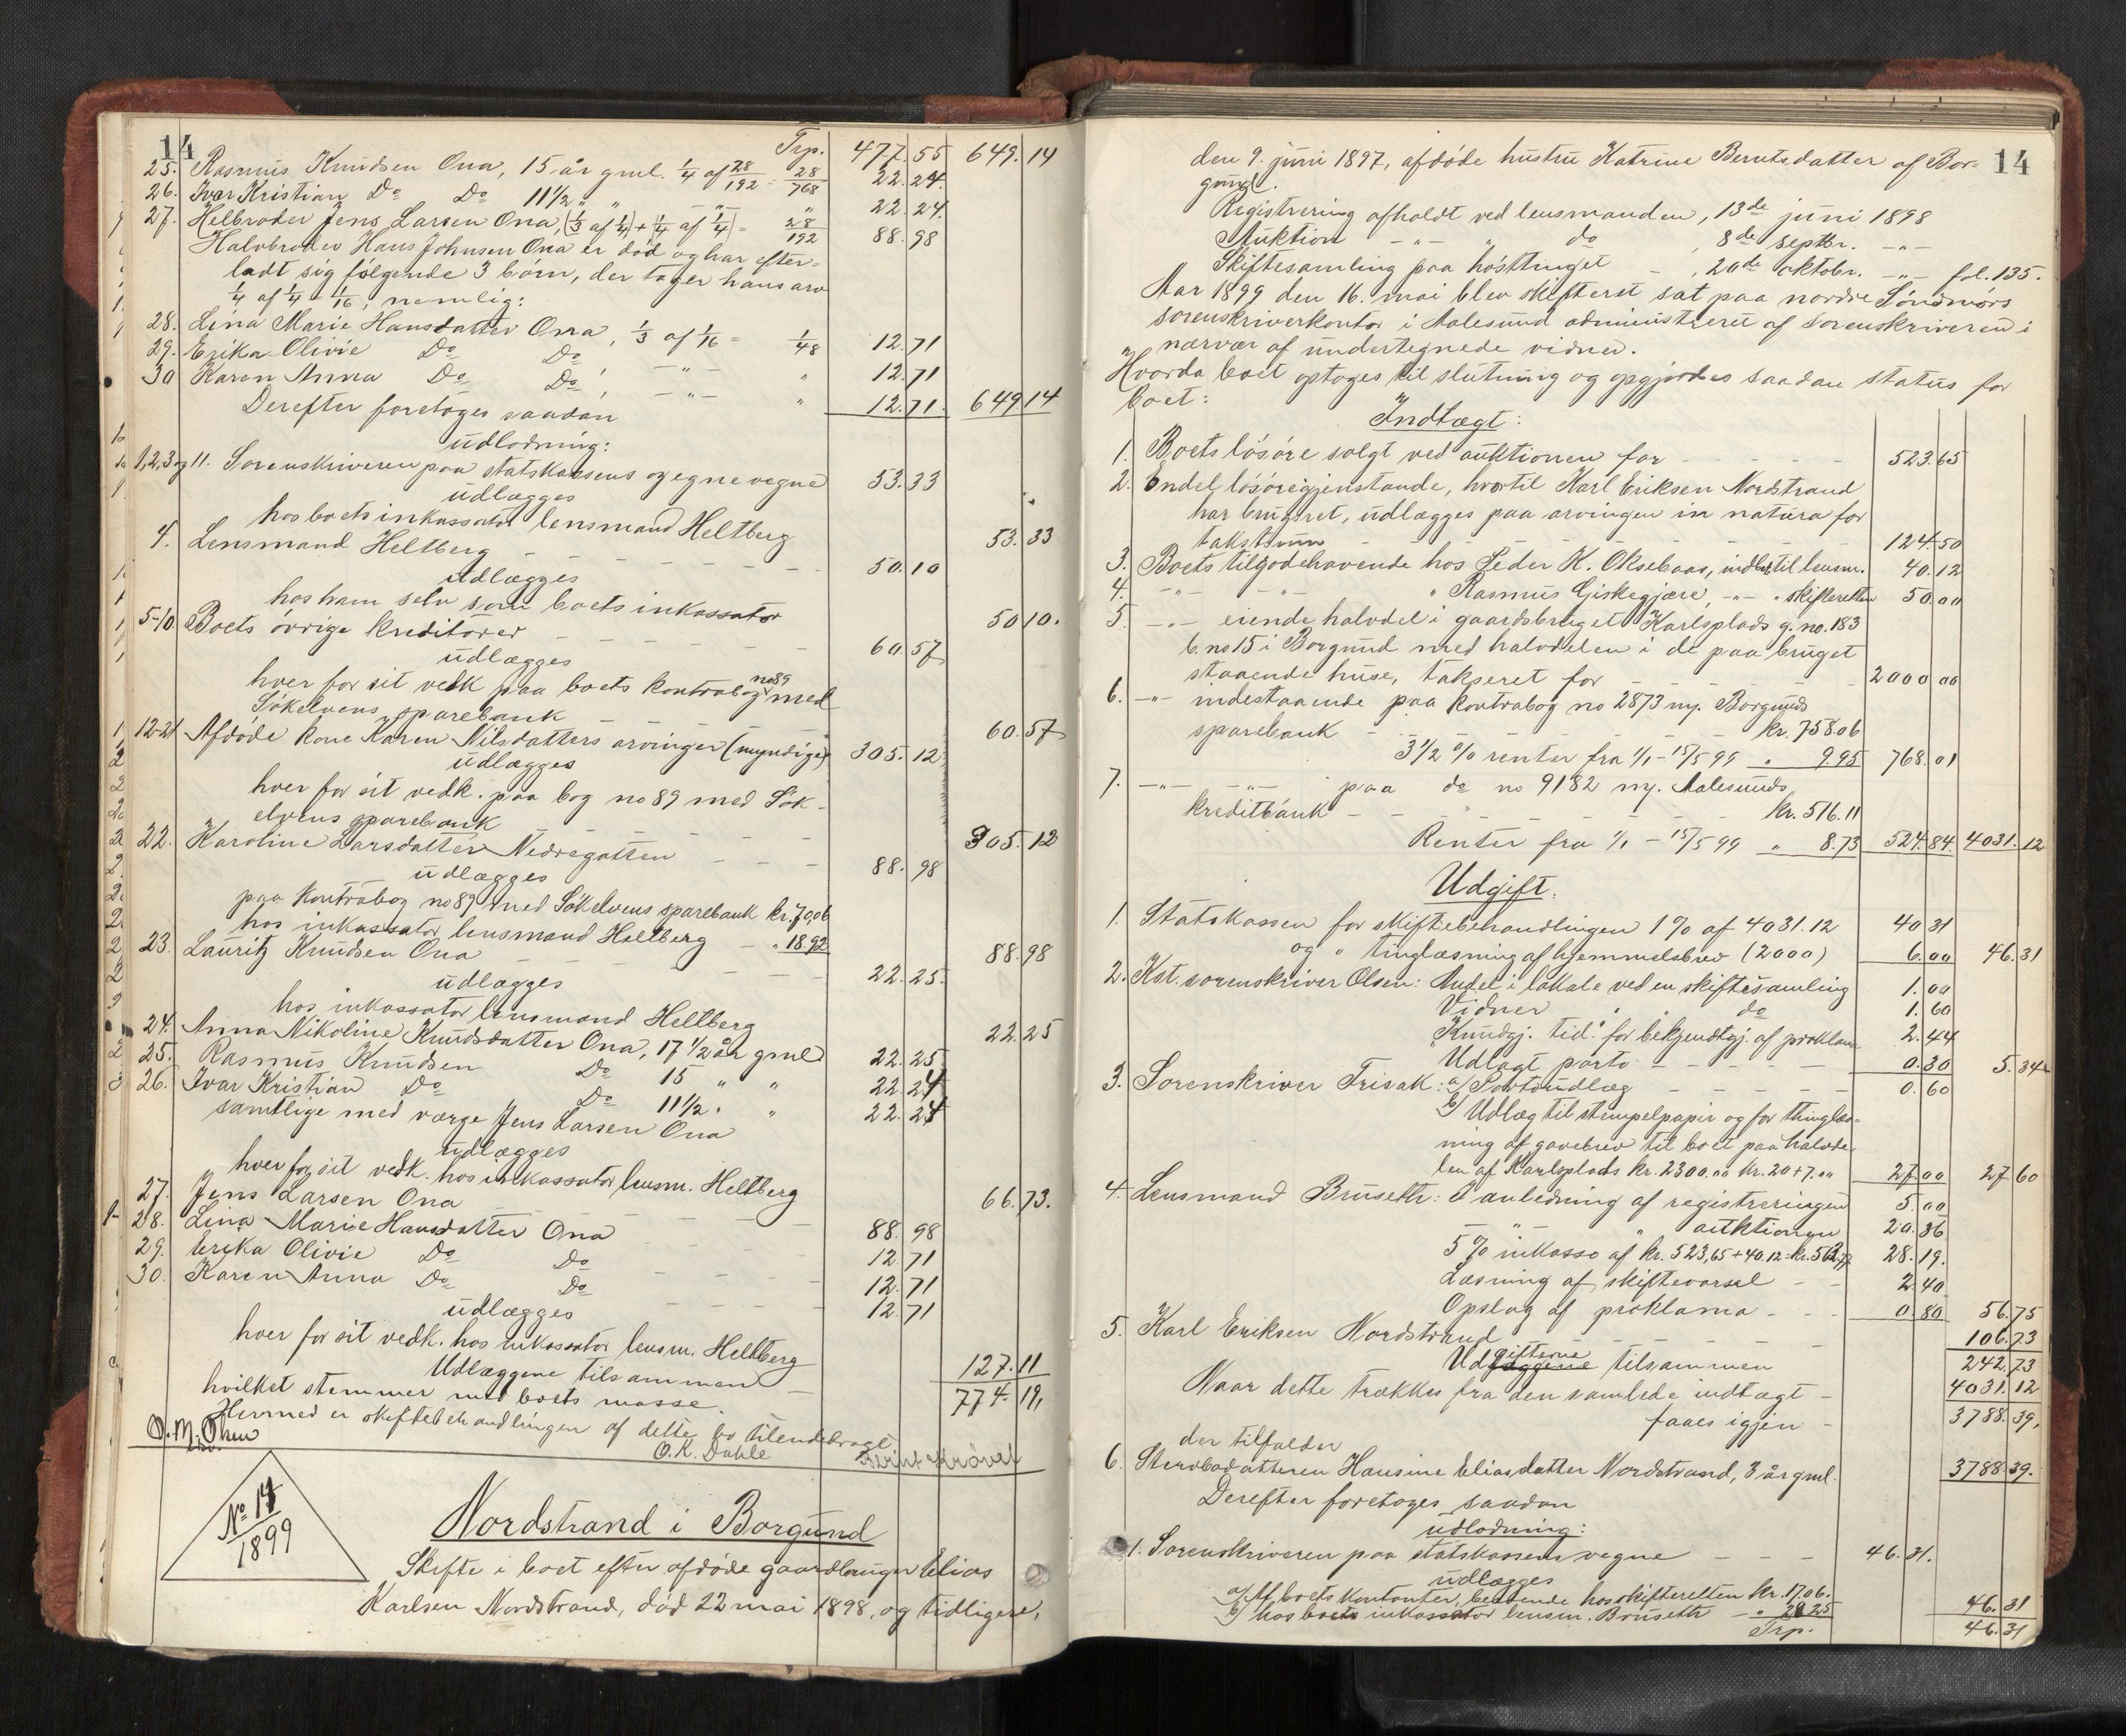 14
Trp. 477.55 649.14
25. Rasmus Knudsen Ona, 15 år gml. 1/4 af 28/192 = 28/768 22.24.
26. Ivar Kristian Do Do 11 1/2 " " -"- " 22.24.
27. Helbroder Jens Larsen Ona, (1/3 af 1/4) + (1/4 af 1/4) = 28/192 88.98
Halvbroder Hans Johnsen Ona er död og har efter-
ladt sig følgende 3 börn, der tager hans arv
1/4 af 1/4 = 1/16, nemlig:
28. Lina Marie Hansdatter Ona, 1/3 af 1/16 = 1/48 12.71
29. Erika Olivie Do Do, -"- " 12.71
30 Karen Anna Do Do, -"- " 12.71. 649.14
Derefter foretages saadan
udlodning:
1,2,3 og 11. Sorenskriveren paa statskassens og egne vegne 53.33
udlægges
hos boets inkassator lensmand Heltberg 53.33
4. Lensmand Heltberg 50.10
udlægges
hos ham selv som boets inkassator 50.10.
5-10 Boets övrige kreditorer 60.57
udlægges
hver for sit vedk paa boets kontrabog no 89 med
Sökelvens sparebank 60.57
12-21 Afdöde kone Karen Nilsdatters arvinger (myndige) 305.12
udlægges
hver for sit vedk. paa bog no 89 med Sök-
elvens sparebank 305.12
22. Karoline Larsdatter Nedregotten 88.98
udlægges
paa kontrabog no 89 med Sökelvens sparebank kr. 70,06
hos inkassator lensmand Heltberg - " 18.92 88.98
23. Lauritz Knudsen Ona 22.25.
udlægges
hos inkassator lensmand Heltberg 22.25
24. Anna Nikoline Knudsdatter Ona, 17 1/2 år gml 22.25
25. Rasmus Knudsen Do 15 " " 22.24
26. Ivar Kristian Do Do 11 1/2 " " 22.24
samtlige med værge Jens Larsen Ona
udlægges
hver for sit vedk. hos inkassator lensm. Heltberg 66.73.
27. Jens Larsen Ona 88.98
28. Lina Marie Hansdatter Ona 12.71
29. Erika Olivie Do Do 12.71
30. Karen Anna Do Do 12.71
udlægges
hver for sit vedk. hos inkassator lensm. Heltberg 127.11
Udlæggene tilsammen 774.19,
hvilket stemmer med boets masse.
Hermed er skiftebehandlingen af dette bo tilendebragt.
O. M. Olsen
O. K. Dahle
No 14
1899
Nordstrand i Borgund
Skifte i boet efter afdøde gaardbruger Elias
Karlsen Nordstrand, död 22 mai 1898, og tidligere,
14
den 9. juni 1897, afdöde hustru Katrine Berntsdatter af Bor-
gund.
Registrering afholdt ved lensmanden, 13de juni 1898
Auktion -"- " do, 8de septbr. -"-
Skiftesamling paa hösttinget - , 20de oktobr. -"- fol. 135.
Aar 1899 den 16. mai blev skifteret sat paa nordre Söndmörs
sorenskriverkontor i Aalesund administreret af sorenskriveren i
nærvær af undertegnede vidner.
Hvorda boet optoges til slutning og opgjordes saadan status for
boet:
Indtægt:
1. Boets lösöre solgt ved auktionen for 523.65
2. Endel lösöregjenstande, hvortil Karl Eriksen Nordstrand
har brugsret, udlægges paa arvingen in natura for
takstsum 124.50
3. Boets tilgodehavende hos Peder K. Oksebaas, indbt. til lensm. 40.12
4. -"- -"- " Rasmus Giskegjære, -"- " skifteretten 50.00
5. -"- eiende halvdel i gaardsbruget Karlsplads g. no. 183
b. no 15 i Borgund med halvdelen i de paa bruget
staaende huse, takseret for 2000 00
6. -"- indestaaende paa kontrabog no 2873 ny. Borgunds
sparebank kr. 758.06
3 1/2 % renter fra 1/1 - 15/5 99 " 9.95 768.01
7. -"- -"- paa do no 9182 ny. Aalesunds
kreditbank kr. 516.11
Renter fra 1/1 - 15/5 99 " 8.73 524.84. 4031.12
Udgift:
1. Statskassen for skiftebehandlingen 1 % af 4031.12 40 31
og " tinglæsning af hjemmelsbrev (2000) 6.00 46.31
2. Kst. sorenskriver Olsen: Andel i lokale ved en skiftesamling 1.00
Vidner " " do 1.60
Kundgj. tid. for bekjendtgj. af proklama 2.44
Udlagt porto 0.30 5.34
3. Sorenskriver Frisak: a/ Portoudlæg 0.60
b/ Udlæg til stempelpapir og for thinglæs-
ning af gavebrev til boet paa halvde-
len af Karlsplads kr. 2300.00 kr. 20 + 7.00 27.00 27 60
4. Lensmand Bruseth: I anledning af registreringen 5.00
" " auktionen 20.36
5 % inkasso af kr. 523,65 + 40.12 = kr. 563,77 28.19.
Læsning af skiftevarsel 2.40
Opslag af proklama 0.80 56.75
5. Karl Eriksen Nordstrand 106.73
Udgifterne tilsammen 242.73
Naar dette trækkes fra den samlede indtægt 4031.12
faaes igjen 3788.39,
der tilfalder
6. Stervbodatteren Hansine Eliasdatter Nordstrand, 3 år gml. 3788.39.
Derefter foretages saadan
udlodning:
1. Sorenskriveren paa statskassens vegne 46.31.
udlægges
a/ Af boets kontanter, beroende hos skifteretten kr. 17.06.
b/ hos boets inkassator lensm. Bruseth - " 29 25 46.31
Trp. 46.31